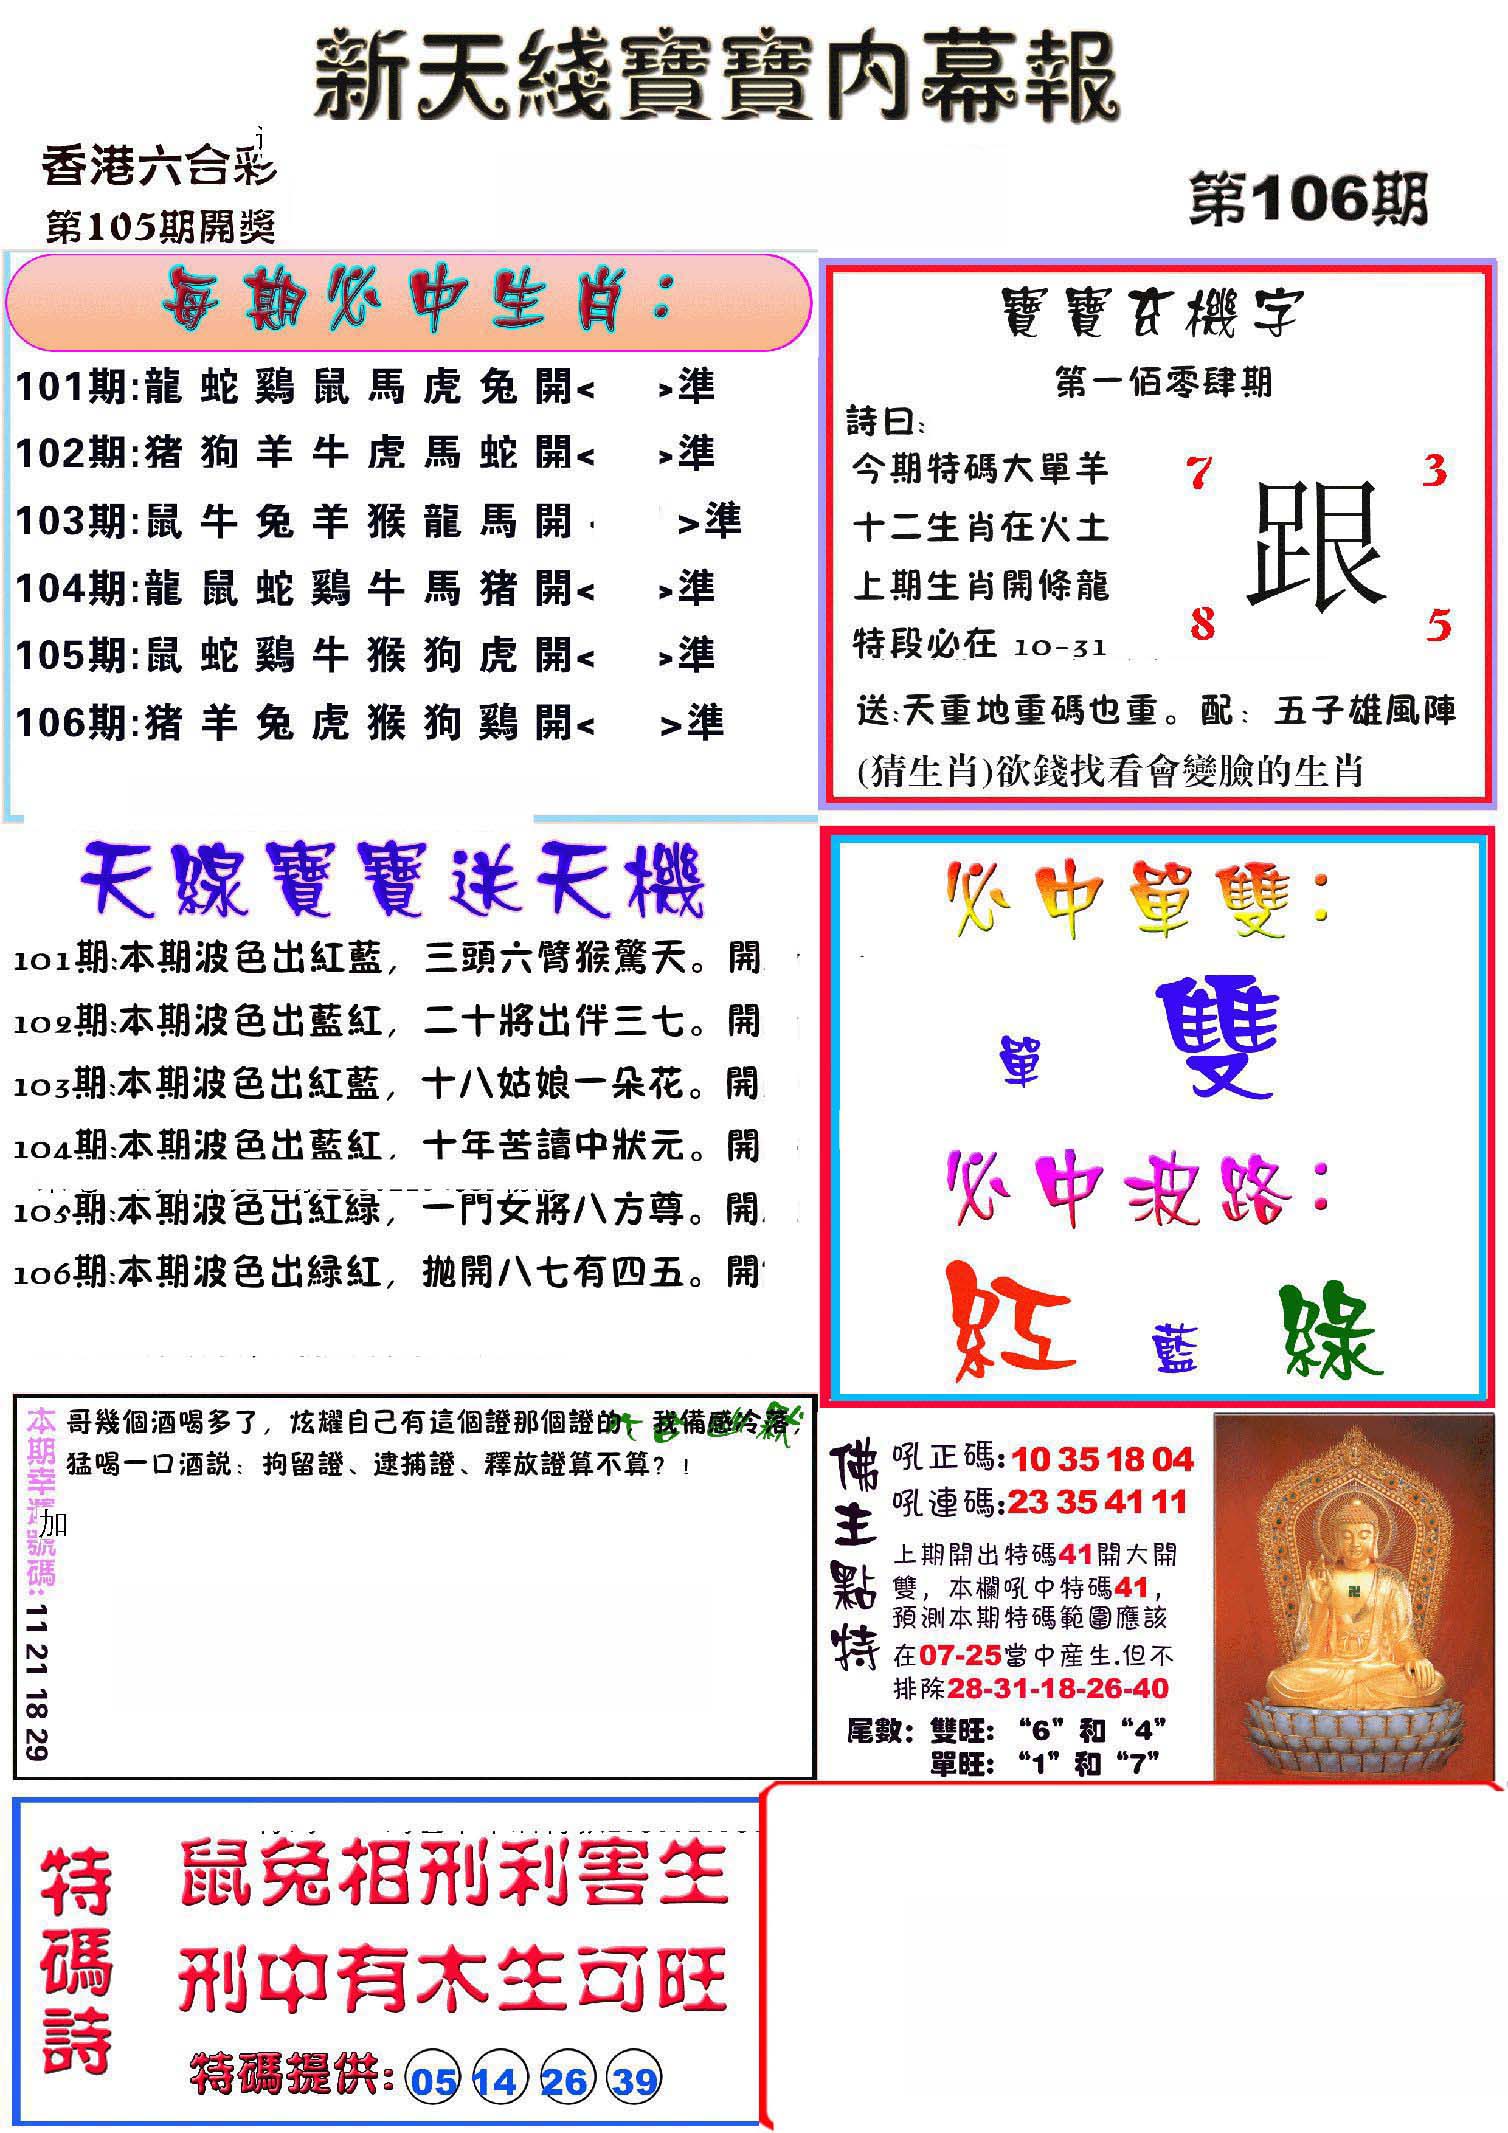 新天綫寶寶内幕報
香港六合彩
第105期開獎
第106期
每期必中生肖：
101期:龍 蛇 鷄 鼠 馬 虎 兔 開< >準
102期:猪 狗 羊 牛 虎 馬 蛇 開< >準
103期:鼠 牛 兔 羊 猴 龍 馬 開 >準
104期:龍 鼠 蛇 鷄 牛 馬 猪 開< >準
105期:鼠 蛇 鷄 牛 猴 狗 虎 開< >準
106期:猪 羊 兔 虎 猴 狗 鷄 開< >準
寶寶玄機字
第一佰零肆期
詩曰:
今期特碼大單羊
十二生肖在火土
上期生肖開條龍
特段必在 10-31
7 3
跟
8 5
送:天重地重碼也重。配：五子雄風陣
(猜生肖)欲錢找看會變臉的生肖
天線寶寶送天機
101期:本期波色出紅藍，三頭六臂猴驚天。開
102期:本期波色出藍紅，二十將出伴三七。開
103期:本期波色出紅藍，十八姑娘一朵花。開
104期:本期波色出藍紅，十年苦讀中狀元。開
105期:本期波色出紅緑，一門女將八方尊。開
106期:本期波色出緑紅，拋開八七有四五。開
必中單雙：
單 雙
必中波路：
紅 藍 綠
本期幸運號碼:11 21 18 29
加
哥幾個酒喝多了，炫耀自己有這個證那個證的，我備感冷落，
猛喝一口酒説：拘留證、逮捕證、釋放證算不算？！
佛主點特
吼正碼:10 35 18 04
吼連碼:23 35 41 11
上期開出特碼41開大開
雙，本欄吼中特碼41，
預測本期特碼範圍應該
在07-25當中産生.但不
排除28-31-18-26-40
尾數：雙旺：“6”和“4”
單旺：“1”和“7”
特碼詩
鼠兔相刑利害生
刑中有木生可旺
特碼提供: 05 14 26 39